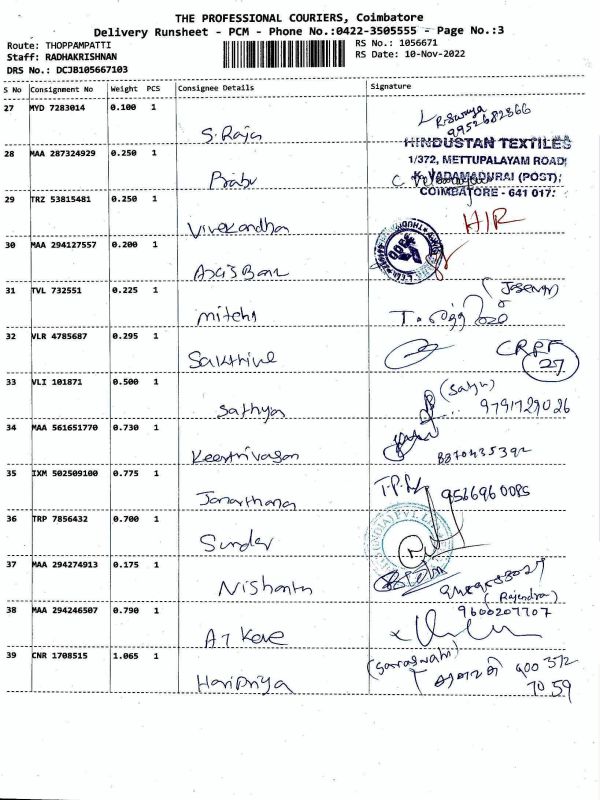 THE PROFESSIONAL COURIERS, Coimbatore
Delivery Runsheet - PCM - Phone No.:0422-3505555 - Page No.:3
Route: THOPPAMPATTI
RS No.: 1056671
Staff: RADHAKRISHNAN
RS Date: 10-Nov-2022
DRS No.: DCJB105667103
S No Consignment No Weight PCS Consignee Details Signature
27 MYD 7283014 0.100 1 S. Raja
9952682866
28 MAA 287324929 0.250 1 Prabu
HINDUSTAN TEXTILES
1/372, METTUPALAYAM ROAD
K. VADAMADURAI (POST),
COIMBATORE - 641 017.
29 TRZ 53815481 0.250 1 Vivekandha
H/R
30 MAA 294127557 0.200 1 Axis Bank
31 TVL 732551 0.225 1 mitehs
32 VLR 4785687 0.295 1 Sakthivel
CRPF
27
33 VLI 101871 0.500 1 Sathya
(Sathya)
9791729026
34 MAA 561651770 0.730 1 Keerthivasan
8870435392
35 IXM 502509100 0.775 1 Janarthana
9566960085
36 TRP 7856432 0.700 1 Sunder
37 MAA 294274913 0.175 1 Nishanth
(Rajendra)
38 MAA 294246507 0.790 1
9600207707
39 CNR 1708515 1.065 1 Haripriya
(Saraswathi)
900 372
70 59